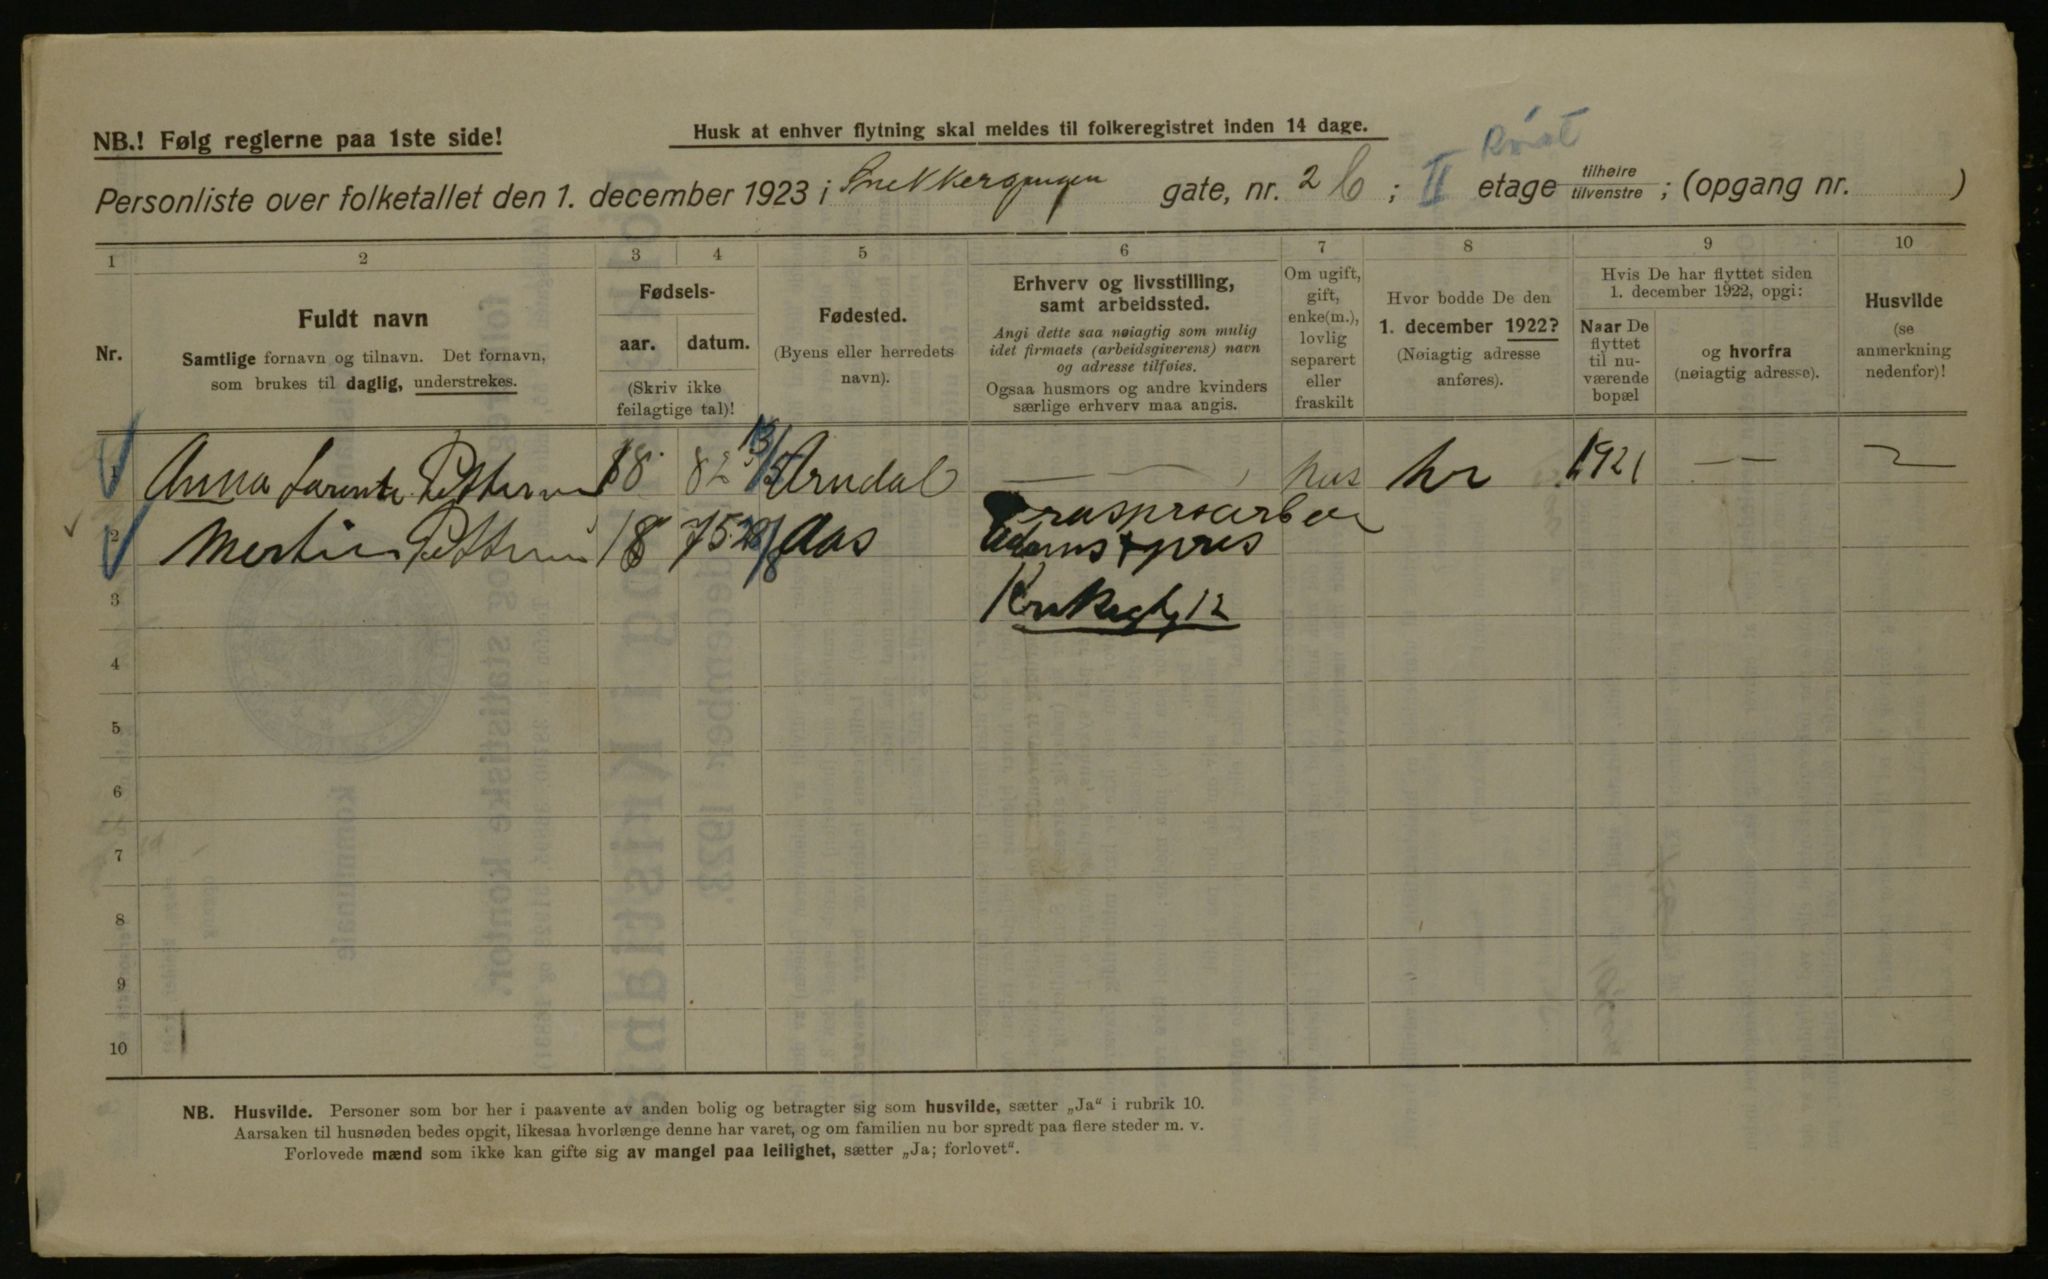 NB.! Følg reglerne paa 1ste side!
Husk at enhver flytning skal meldes til folkeregistret inden 14 dage.
Personliste over folketallet den 1. december 1923 i Snekkergangen gate, nr. 2 b ; II etage tilhøire tilvenstre ; (opgang nr. )
1 2 3 4 5 6 7 8 9 10
Nr.
Fuldt navn
Samtlige fornavn og tilnavn. Det fornavn,
som brukes til daglig, understrekes.
Fødsels-
aar. datum.
(Skriv ikke
feilagtige tal)!
Fødested.
(Byens eller herredets
navn).
Erhverv og livsstilling,
samt arbeidssted.
Angi dette saa nøiagtig som mulig
idet firmaets (arbeidsgiverens) navn
og adresse tilføies.
Ogsaa husmors og andre kvinders
særlige erhverv maa angis.
Om ugift,
gift,
enke(m.),
lovlig
separert
eller
fraskilt
Hvor bodde De den
1. december 1922?
(Nøiagtig adresse
anføres).
Hvis De har flyttet siden
1. december 1922, opgi:
Naar De
flyttet
til nu-
værende
bopæl
og hvorfra
(nøiagtig adresse).
Husvilde
(se
anmerkning
nedenfor)!
1 Anna Larentse Pettersen 18 82 13/5 Arndal — hus hr 1921 — —
2 Pettersen 18 75 28/8 Aas
3
12
4
5
6
7
8
9
10
NB. Husvilde. Personer som bor her i paavente av anden bolig og betragter sig som husvilde, sætter „Ja“ i rubrik 10.
Aarsaken til husnøden bedes opgit, likesaa hvorlænge denne har varet, og om familien nu bor spredt paa flere steder m. v.
Forlovede mænd som ikke kan gifte sig av mangel paa leilighet, sætter „Ja; forlovet“.